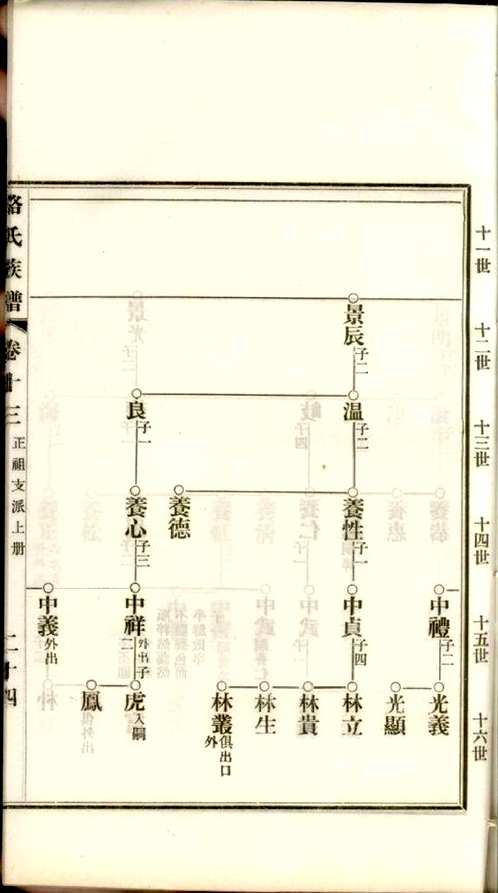 十一世
十二世
十三世
十四世
十五世
十六世
景辰 子二
温 子二
良 子一
養性 子一
養德
養心 子三
中禮 子二
中貞 子四
中祥 外出 子二
中義 外出
光義
光顯
林立
林貴
林生
林叢 俱出口外
虎 入嗣
鳳
駱氏族譜
卷十三
正祖支派上册
二十四